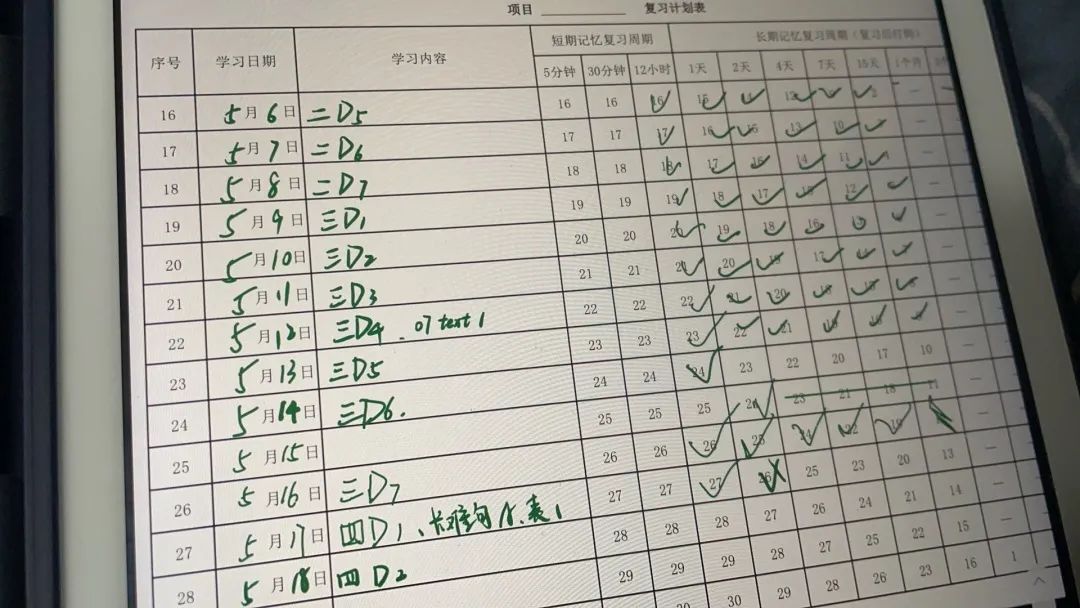 项目 复习计划表
序号 学习日期 学习内容 短期记忆复习周期 长期记忆复习周期（复习后打钩）
5分钟 30分钟 12小时 1天 2天 4天 7天 15天 1个月
16 5月6日 二D5 16 16 16 15 12
17 5月7日 二D6 17 17 17 16 15 13 10
18 5月8日 二D7 18 18 18 17 16 14 11
19 5月9日 三D1 19 19 19 18 17 12
20 5月10日 三D2 20 20 20 19 18 16
21 5月11日 三D3 21 21 21 20 19 17
22 5月12日 三D4 . 07 text 1 22 22 22 21 20
23 5月13日 三D5 23 23 23 22 21
24 5月14日 三D6. 24 24 24 23 22 20 17 10
25 5月15日 25 25 25 24 23 21 18 11
26 5月16日 三D7 26 26 26 25 24 22 19
27 5月17日 四D1、长难句 27 27 27 26 25 23 20 13
28 5月18日 四D2 28 28 28 27 26 24 21 14
29 29 29 28 27 25 22 15
30 30 29 28 26 23 16 1